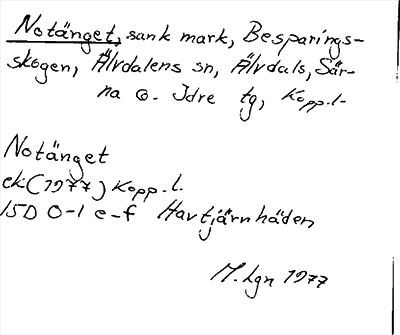 Notänget, sank mark, Besparings-
skogen, Älvdalens sn, Älvdals, Sär-
na o. Idre tg, Kopp.l.
Notänget
ek (1977) Kopp.l.
15D 0-1 e-f Havtjärnhäden
M. Lgn 1977